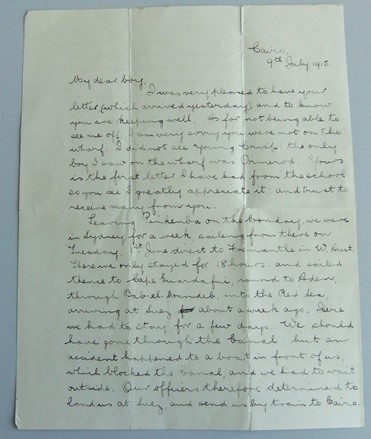 Cairo,
9th July 1918.
My dear boy,
I was very pleased to have your
letter (which arrived yesterday) and to know
you are keeping well. As for not being able to
see me off, I am very sorry you were not on the
wharf. I did not see young the only
boy I saw on the wharf was Ormerod. Yours
is the first letter I have had from the school
so you see I greatly appreciate it: and trust to
receive many from you.
Leaving Pinkenba on the Monday, we were
in Sydney for a week sailing from there on
Tuesday June direct to Fremantle in W. Aust.
There we only stayed for 18 hours, and sailed
thence to Cape Guardafui, round to Aden,
through Babel-Mandeb, into the Red Sea,
arriving at Suez about a week ago. Here
we had to stay for a few days. We should
have gone through the Canal: but an
accident happened to a boat in front of us,
which blocked the Canal, and we had to wait
outside. Our officers therefore determined to
land us at Suez and send us by train to Cairo.